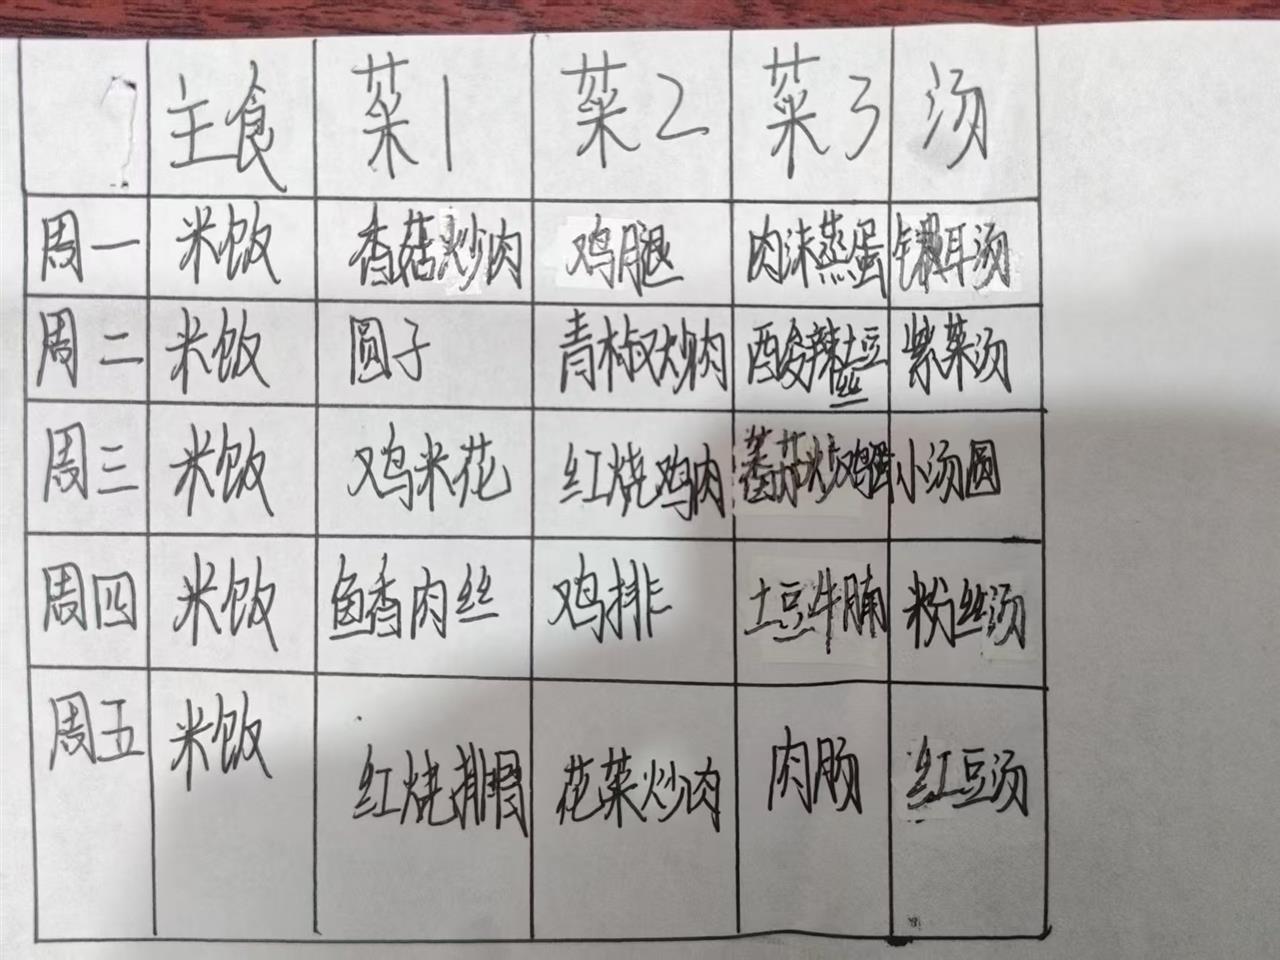 主食 菜1 菜2 菜3 汤
周一 米饭 香菇炒肉 鸡腿 肉沫蒸蛋 银耳汤
周二 米饭 圆子 青椒炒肉 酸辣土豆丝 紫菜汤
周三 米饭 鸡米花 红烧鸡肉 蕃茄炒鸡蛋 小汤圆
周四 米饭 鱼香肉丝 鸡排 土豆牛腩 粉丝汤
周五 米饭 红烧排骨 花菜炒肉 肉肠 红豆汤